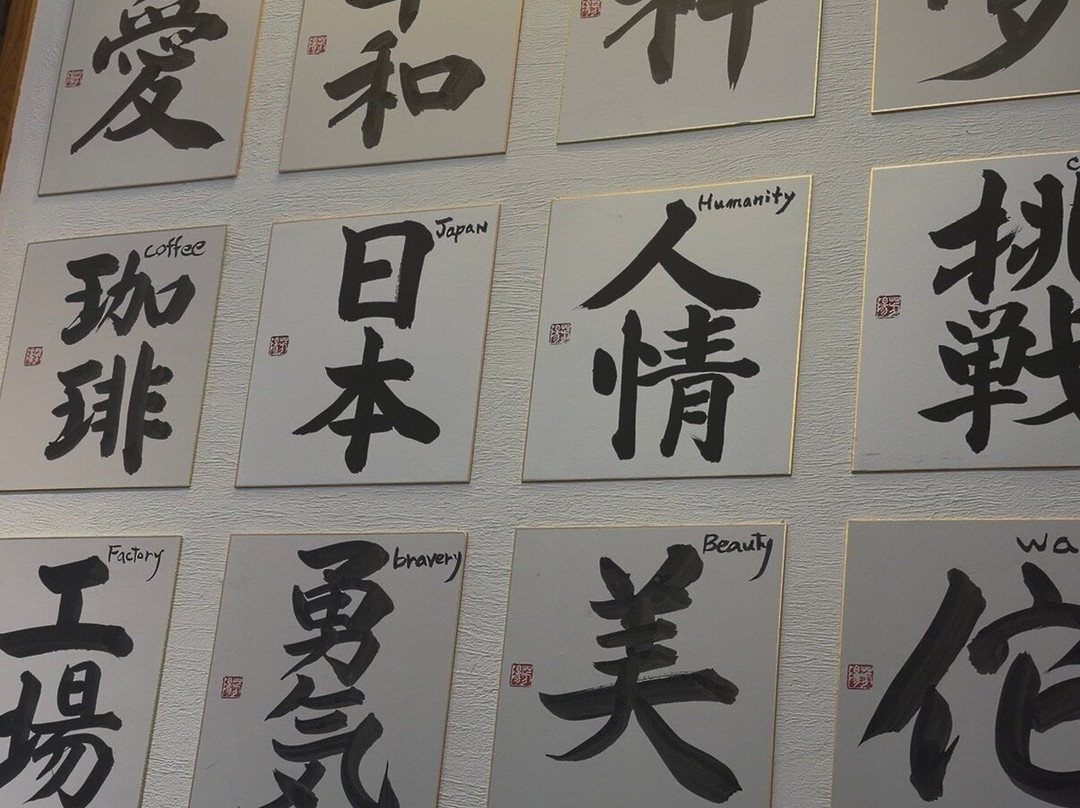 愛
和
coffee
珈
琲
Japan
日
本
Humanity
人
情
挑
戦
Factory
工
場
bravery
勇
気
Beauty
美
wa
侘